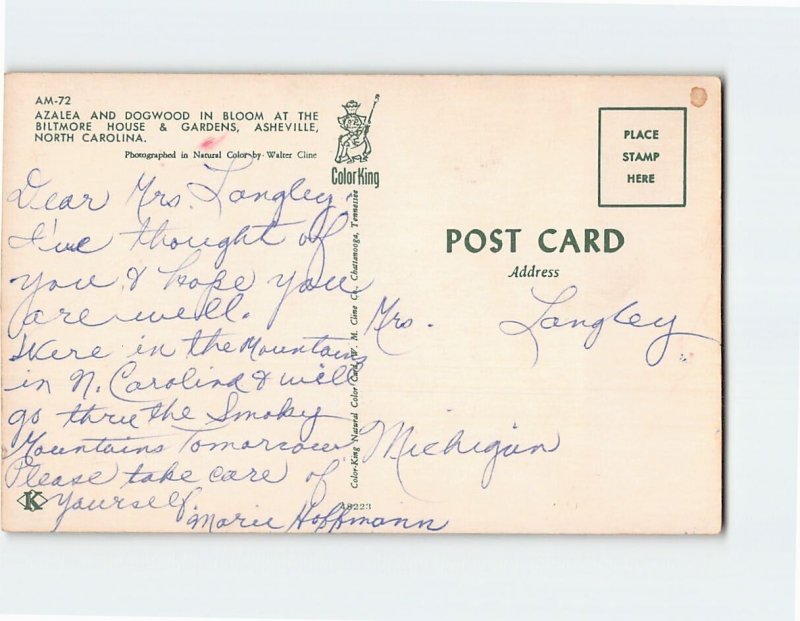 AM-72
AZALEA AND DOGWOOD IN BLOOM AT THE
BILTMORE HOUSE & GARDENS, ASHEVILLE,
NORTH CAROLINA.
Photographed in Natural Color by Walter Cline
ColorKing
Dear Mrs. Langley -
I've thought of
you & hope you
are well.
Were in the Mountains
in N. Carolina & will
go thru the Smoky
Mountains Tomorrow
Please take care of
yourself.
Marie Hoffmann
K
Color-King Natural Color Card, W. M. Cline Co., Chattanooga, Tennessee
PLACE
STAMP
HERE
POST CARD
Address
Mrs. Langley
Michigan